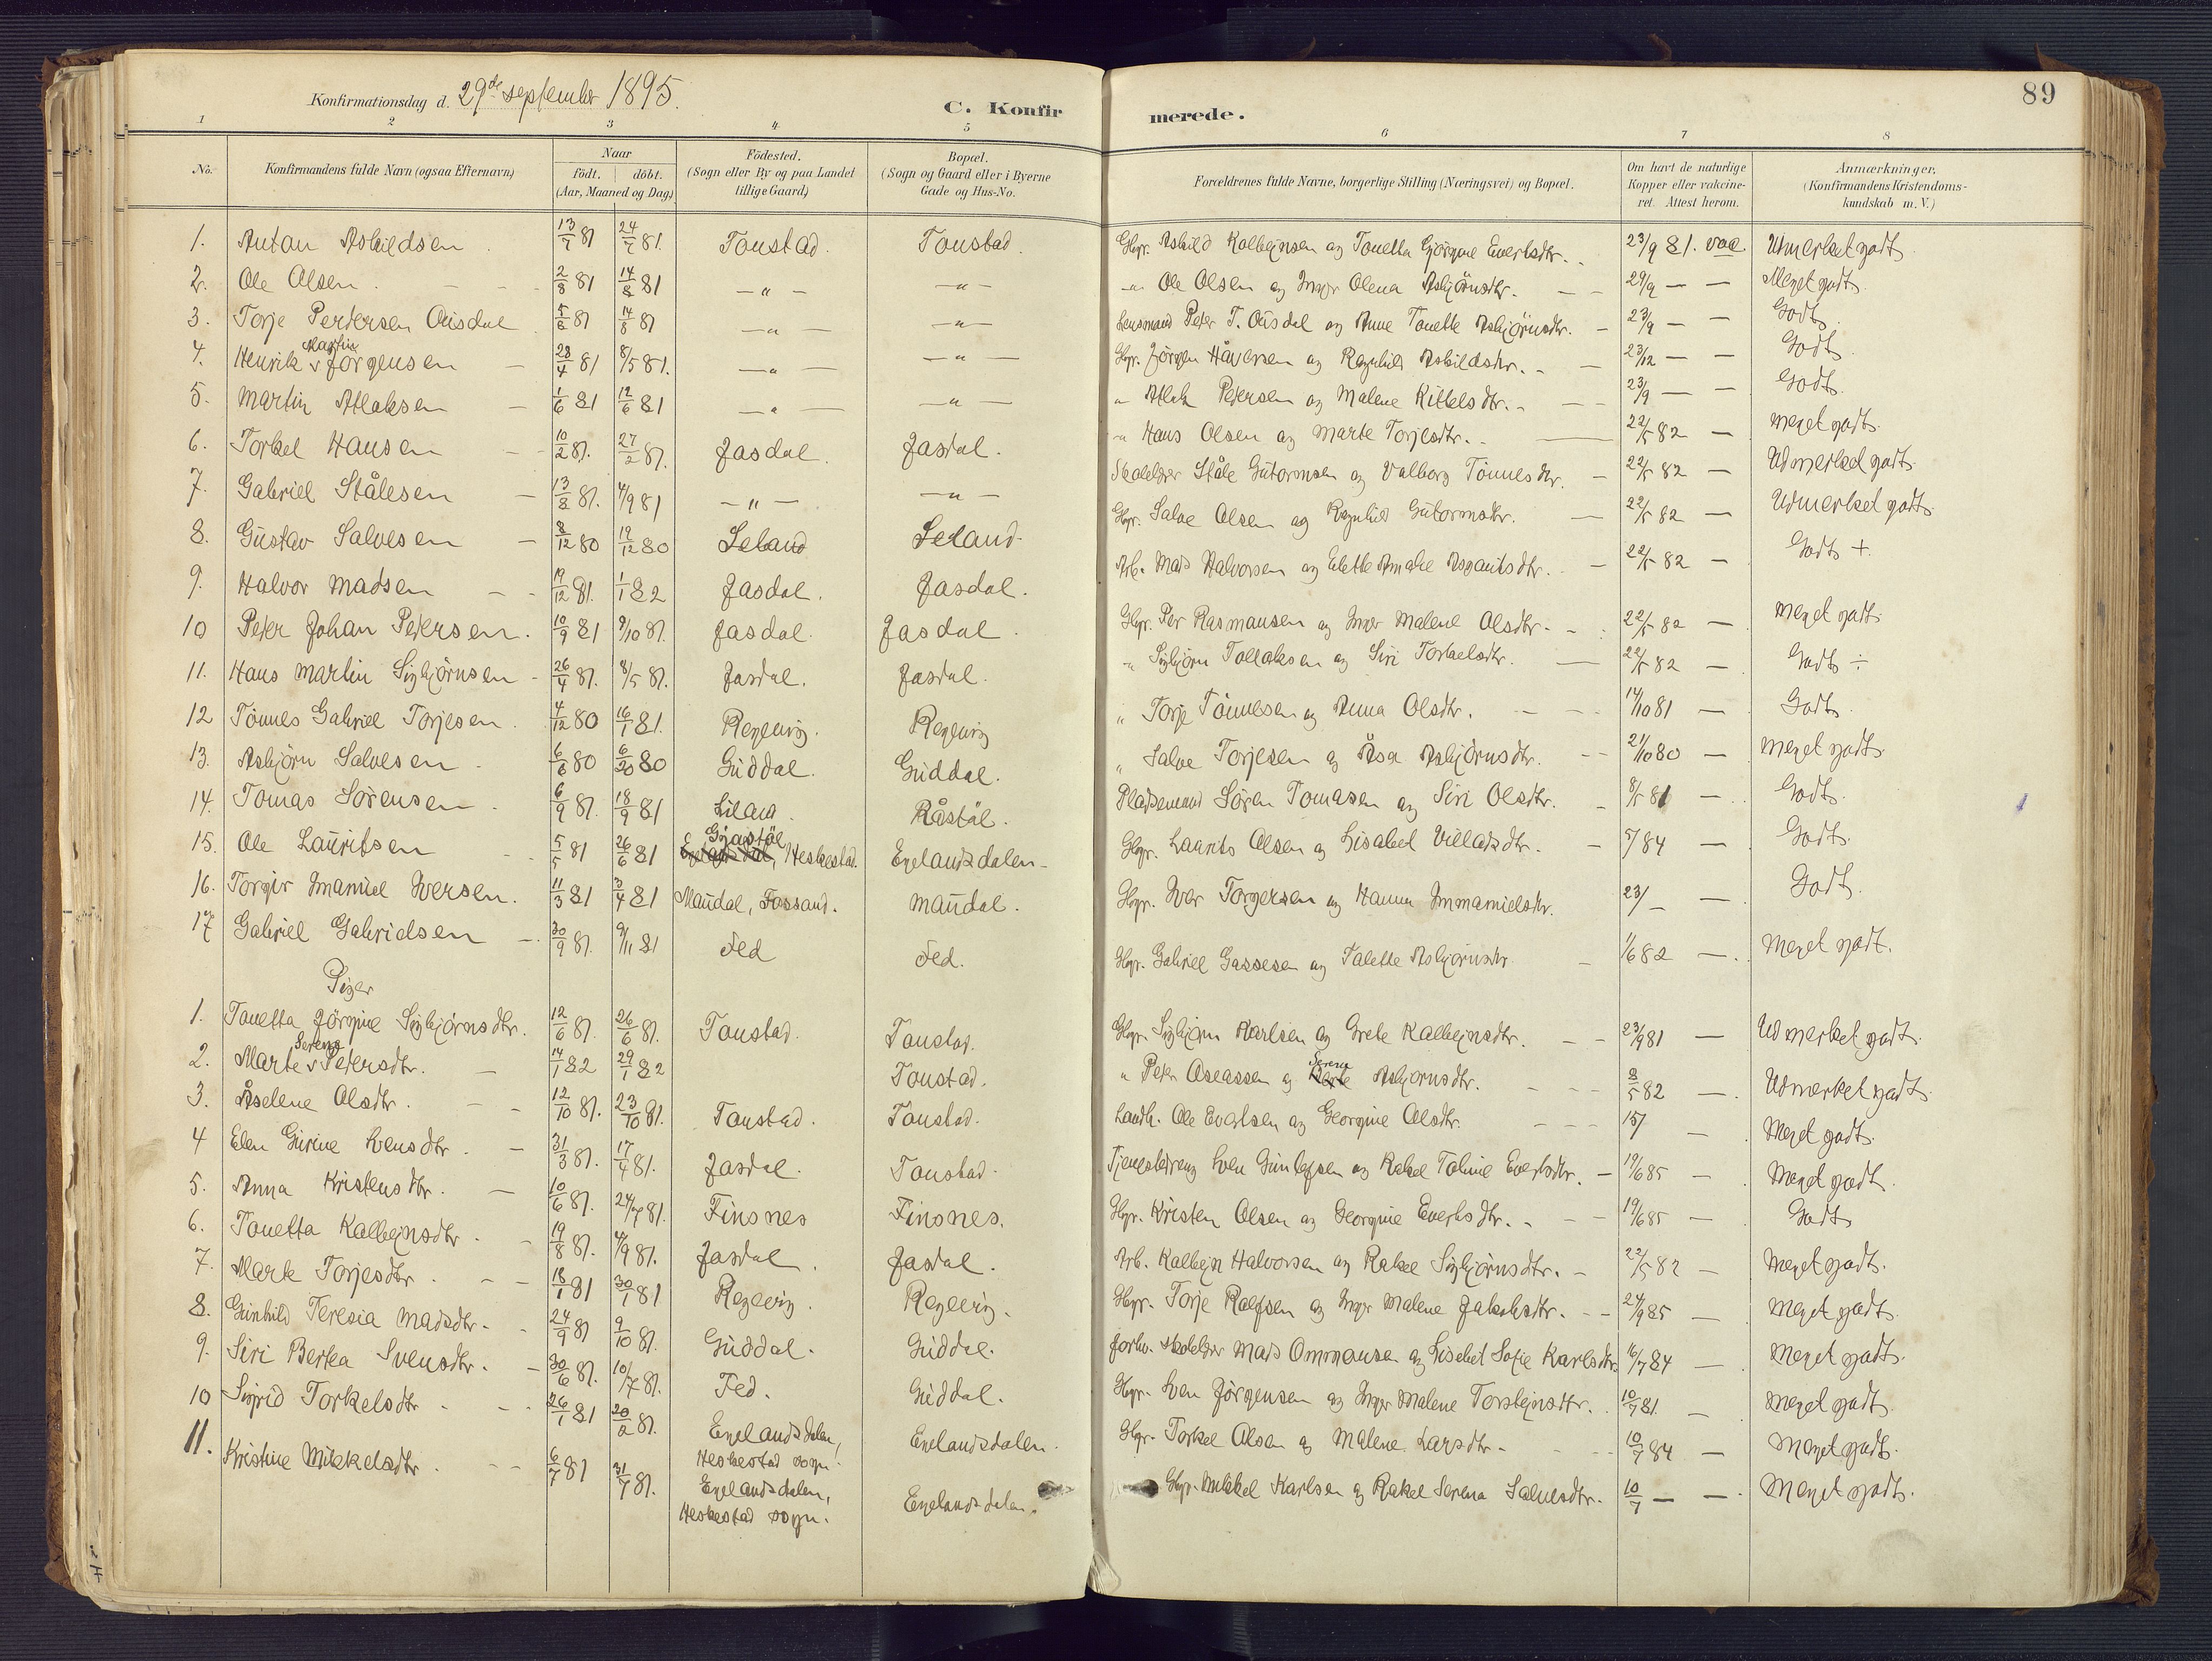 89
Konfirmationsdag d. 29de september 1895.
C. Konfirmerede.
1 2 3 4 5 6 7 8
No. Konfirmandens fulde Navn (ogsaa Efternavn) Naar födt. döbt. (Aar, Maaned og Dag) Födested. (Sogn eller By og paa Landet tillige Gaard) Bopæl. (Sogn og Gaard eller i Byerne Gade og Hus-No. Forældrenes fulde Navne, borgerlige Stilling (Næringsvei) og Bopæl. Om havt de naturlige Kopper eller vakcineret. Attest herom. Anmærkninger. (Konfirmandens Kristendomskundskab m. V.)
1. Antan Askildsen 13/7 81 24/7 81. Tonstad. Tonstad. Gbr. Askild Kalleinsen og Tonetta Gjörgine Evertsdtr. 23/9 81. vac. Udmerket godt
2. Ole Olsen 2/8 81 14/8 81 —"— —"— —"— Ole Olsen og Inger Olena Asbjörnsdtr. 29/9 — — Meget godt.
3. Torje Pedersen Ousdal 5/8 81 14/8 81 —"— —"— Lensmand Peder T. Ousdal og Anne Tonette Asbjörnsdtr. 23/9 — — Godt.
4. Henrik Martin Jörgensen 28/4 81 8/5 81. —"— —"— Gbr. Jörgen Håversen og Ragnhild Askildsdtr. 23/12 — — Godt.
5. Martin Atlaksen 1/6 81 12/6 81 —"— —"— " Atlak Pedersen og Malene Kittelsdtr. 23/9 — — Godt.
6. Torkel Hansen 10/2 81. 27/2 81. Josdal. Josdal. " Hans Olsen og Marte Torjesdtr. 22/5 82 — meget godt.
7. Gabriel Stålesen 13/8 81. 4/9 81 —"— —"— Skolelærer Ståle Gutormsen og Valborg Tönnesdtr. 22/5 82 — Udmerket godt.
8. Gustav Salvesen 8/12 80 19/12 80 Leland Leland Gbr. Salve Olsen og Ragnhild Gutormsdtr. 22/5 82 — Udmerket godt.
9. Halvor Madsen 19/12 81. 1/1 82 Josdal. Josdal. Arb. Mads Halvorsen og Elette Amalie Asgautsdtr. 22/5 82 — Godt +.
10 Peder Johan Pedersen. 10/9 81 9/10 81. Josdal. Josdal. Gbr. Per Rasmausen og Inger Malene Olsdtr. 22/5 82 — meget godt.
11. Hans Martin Sigbjörnsen 26/4 81. 8/5 81. Josdal. Josdal. " Sigbjörn Tollaksen og Siri Torkelsdtr. 22/5 82 — Godt ÷
12 Tönnes Gabriel Torjesen. 4/12 80 16/1 81. Regevig. Regevig " Torje Tönnesen og Anna Olsdtr. 14/10 81 — Godt.
13. Asbjörn Salvesen 6/6 80 6/20 80 Guddal. Guddal. " Salve Torjesen og Åsa Asbjörnsdtr. 21/10 80 — meget godt.
14. Tomas Sörensen 6/9 81. 18/9 81 Liland. Råstöl. Pladsemand Sören Tomasen og Siri Olsdtr. 8/5 81 — Godt.
15. Ole Lauritsen 5/5 81 26/6 81 Gyastöl, Heskestad. Egelandsdalen Gbr. Laurits Olsen og Lisabel Villadsdtr. 7/84 — Godt.
16. Torgir Imanuel Iversen. 11/3 81 3/4 81 Maudal, Fossand. Maudal. Gbr. Iver Torgersen og Hanna Immanuelsdtr. 23/ — — Godt.
17 Gabriel Gabrielsen 30/9 81. 9/11 81 Fed Fed. Gbr. Gabriel Gassesen og Talette Asbjörnsdtr. 1/6 82 — meget godt.
Piger
1. Tonetta Jörgine Sigbjörnsdtr. 12/6 81. 26/6 81. Tonstad. Tonstad. Gbr. Sigbjörn Karlsen og Grete Kalleinsdtr. 23/9 81 — Udmerket godt.
2. Marte Serena Pedersdtr. 14/1 82 29/1 82 Tonstad. " Peder Aseassen og Serena Asbjornsdtr. 8/5 82 — Udmerket godt
3. Åselene Olsdtr. 12/10 81. 23/10 81. Tonstad. Tonstad. Landh. Ole Evertsen og Georgine Olsdtr. 15/ — Meget godt.
4 Elen Gurine Svensdtr. 31/3 81. 17/4 81. Josdal. Tonstad. Tjenestedreng Sven Gunlefsen og Rakel Tomine Evertsdtr. 19/6 85 — Meget godt.
5. Anna Kristensdtr. 10/6 81. 24/7 81. Finsnes Finsnes. Gbr. Kristen Olsen og Georgine Evertsdtr. 19/6 85 — Godt
6. Tonetta Kalleinsdtr. 19/8 81. 4/9 81. Josdal. Josdal. Arb. Kallein Halvorsen og Rakel Sigbjörnsdtr. 22/5 82 — Meget godt.
7. Marte Torjesdtr. 18/1 81 30/1 81 Regevig. Regevig. Gbr. Torje Rolfsen og Inger Malene Jakobsdtr. 24/9 85 — Meget godt.
8. Gunhild Teresia Madsdtr. 24/9 81 9/10 81. Guddal. Guddal. forhv. skolelærer Mads Ommundsen og Lisebet Sofie Karlsdtr. 16/7 84 — Meget godt.
9. Siri Bertea Svensdtr. 30/6 81. 10/7 81. Fed. Guddal. Gbr. Sven Jörgensen og Inger Malene Torsteinsdtr. 10/7 81 — Meget godt.
10 Sigrid Torkelsdtr 26/1 81 20/2 81. Egelandsdalen, Heskestad sogn. Egelandsdalen. Gbr. Torkel Olsen og Malene Larsdtr. 10/7 84 — Meget godt.
11. Kristine Mikkelsdtr. 6/7 81 31/7 81. Egelandsdalen, Heskestad sogn. Egelandsdalen. Gbr. Mikkel Karlsen og Rakel Serena Salvesdtr. 10/7 — — Meget godt.